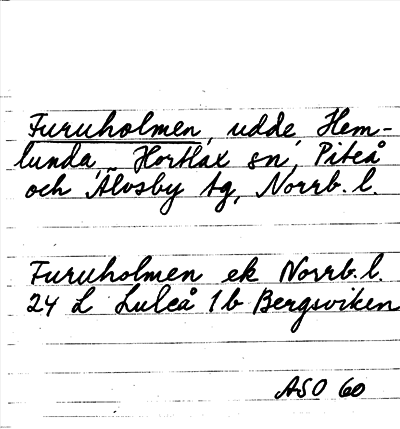 Furuholmen, udde, Hem-
lunda, Hortlax sn, Piteå
och Älvsby tg, Norrb. l.
Furuholmen ek Norrb. l.
24 L Luleå 1b Bergsviken
ASO 60